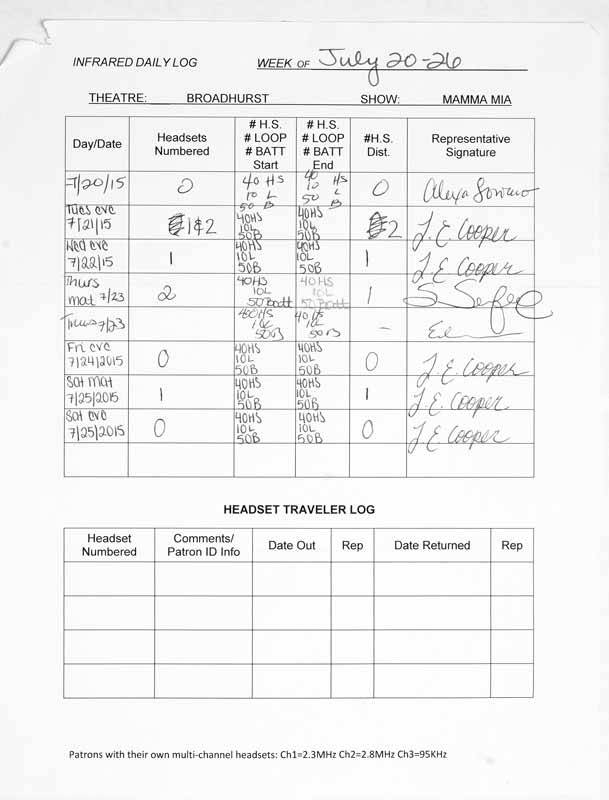 INFRARED DAILY LOG WEEK OF July 20-26
THEATRE: BROADHURST SHOW: MAMMA MIA
Day/Date
Headsets
Numbered
# H.S.
# LOOP
# BATT
Start
# H.S.
# LOOP
# BATT
End
#H.S.
Dist.
Representative
Signature
7/20/15 0 40 HS 10 L 50 B 40 HS 10 L 50 B 0
Tues eve
7/21/15 1&2 40HS 10L 50B 40HS 10L 50B 2 J. E. Cooper
Wed eve
7/22/15 1 40HS 10L 50B 40HS 10L 50B 1 J. E. Cooper
Thurs
mat 7/23 2 40HS 10L 50Batt 40HS 10L 50Batt 1
Thurs 7/23 40HS 10L 50B 40HS 10L 50B -
Fri eve
7/24/2015 0 40HS 10L 50B 40HS 10L 50B 0 J. E. Cooper
Sat mat
7/25/2015 1 40HS 10L 50B 40HS 10L 50B 1 J. E. Cooper
Sat eve
7/25/2015 0 40HS 10L 50B 40HS 10L 50B 0 J. E. Cooper
HEADSET TRAVELER LOG
Headset
Numbered
Comments/
Patron ID Info
Date Out
Rep
Date Returned
Rep
Patrons with their own multi-channel headsets: Ch1=2.3MHz Ch2=2.8MHz Ch3=95KHz